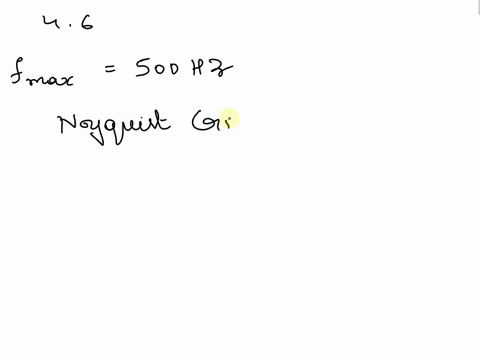 4.6
fmax = 500 Hz
Noyquist Cri